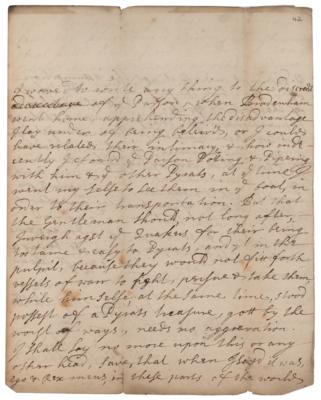 42
I waved to write any thing to the discredit
of ye Parson, when Bradenham
went home, apprehending the disadvantage
I lay under of being believed, or I could
have related their intimacy, & how
I found ye Parson & Pipeing
with him & ye other Pyrats, at ye time I
went my self to see them in ye Goal, in
order to their transportation. But that
the Gentleman should, not long after,
Inveigh agst ye Quakers for their being
so tame & easy to Pyrats, and yt in the
pulpit, because they would not fitt forth
vessels of warr to fight, persue & take them
while himself at the same time, stood
possest of a Pyrats treasure, gott by the
worst of ways, needs no aggravation.
I shall say no more upon this or any
other head, save, that when I said it was,
ego & Rex meus, in these parts of the world